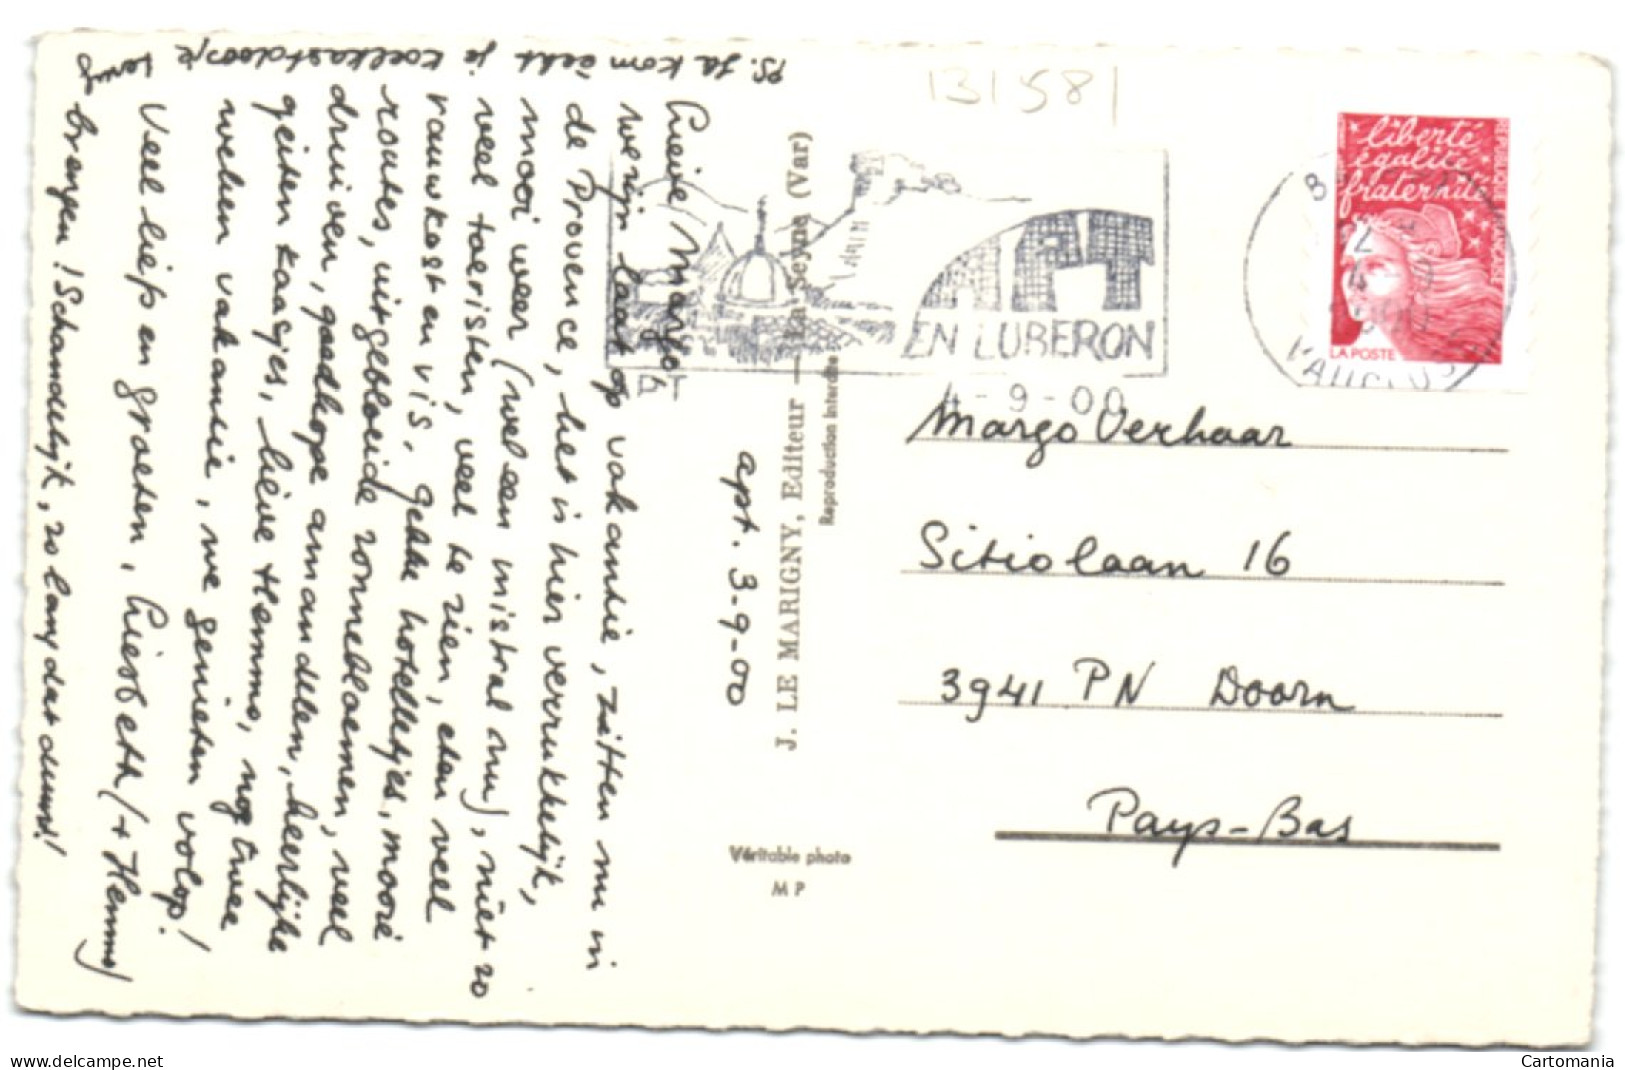 Lieve Margo,
we zijn laat op vakantie, zitten nu in
de Provence, het is hier verrukkelijk,
mooi weer (wel een mistral nu), niet zo
veel toeristen, veel te zien, eten veel
rauwkost en vis. Gekke hotelletjes, mooie
routes, uitgebloeide zonnebloemen, veel
druiven, goedkope amandelen, heerlijke
geiten kaasjes, lieve Hemmo, nog twee
weken vakantie, we genieten volop!
Veel liefs en groeten, Liesbeth (+ Hemmo)
PS. Ja kom echt je koelkastdoosje
brengen! Schandelijk, zo lang dat duurt!
apt. 3-9-00
J. LE MARIGNY, Editeur — La Seyne (Var)
Reproduction interdite
Véritable photo
M P
131581
EN LUBERON
4-9-00
VAUCLUSE
liberté
égalité
fraternité
REPUBLIQUE FRANÇAISE
LA POSTE
Margo Verhaar
Sitiolaan 16
3941 PN Doorn
Pays-Bas
delcampe.net
Cartomania